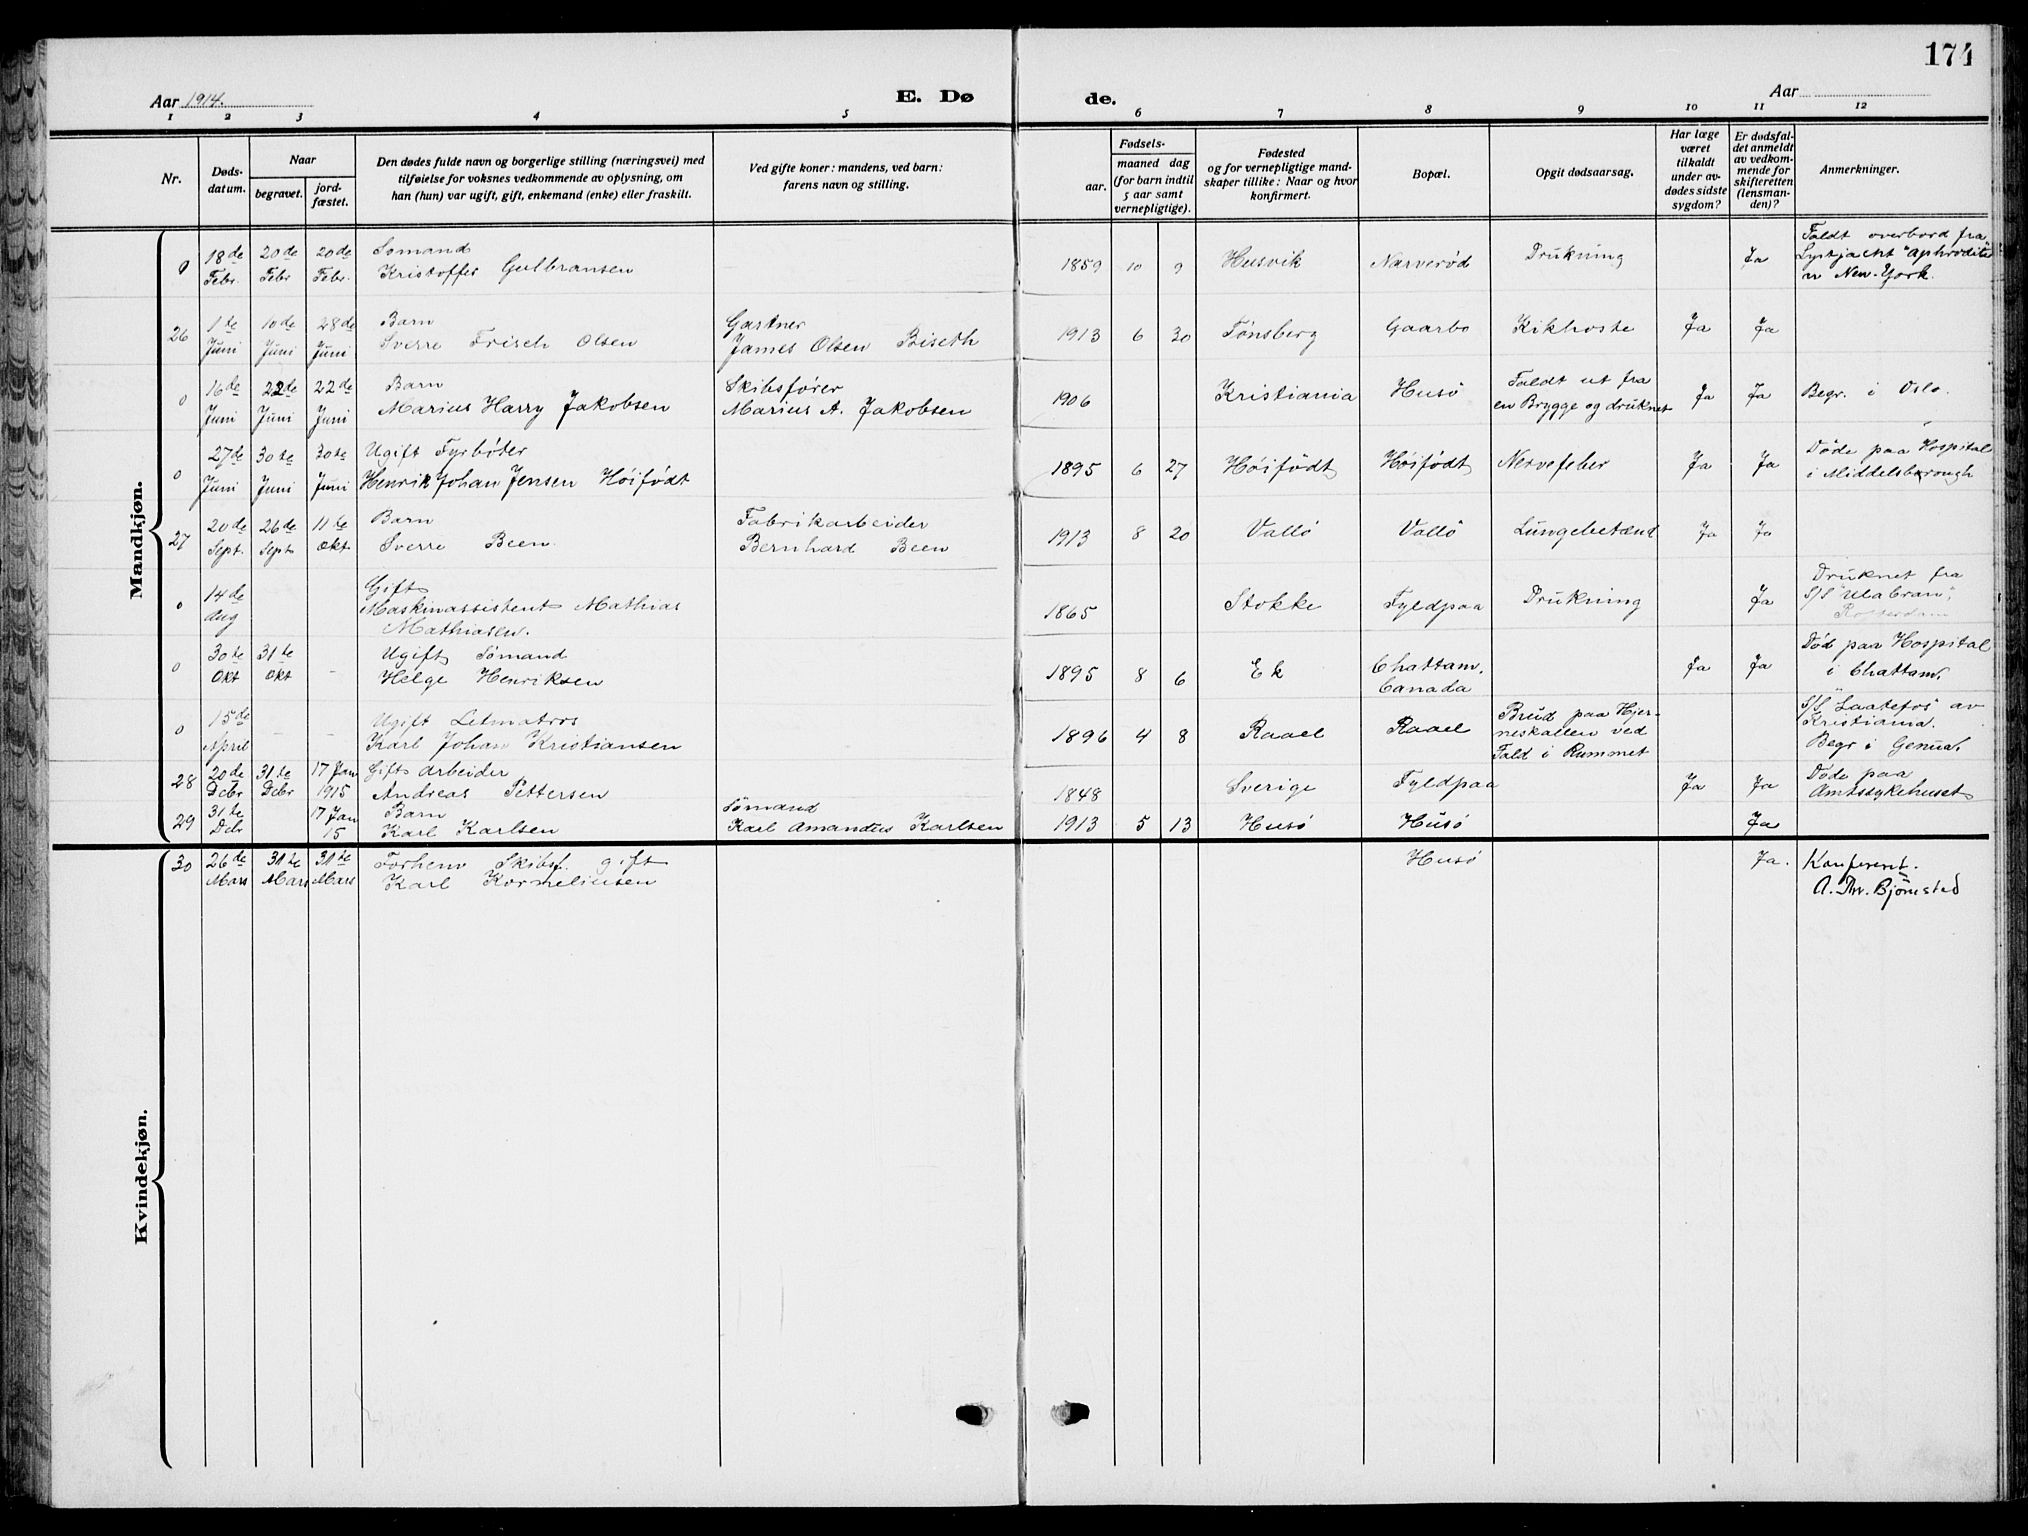 174
Aar 1914.
E. Dø de.
Aar
1 2 3 4 5 6 7 8 9 10 11 12
Nr.
Døds-
datum.
Naar
begravet.
jord-
fæstet.
Den dødes fulde navn og borgerlige stilling (næringsvei) med
tilføielse for voksnes vedkommende av oplysning, om
han (hun) var ugift, gift, enkemand (enke) eller fraskilt.
Ved gifte koner: mandens, ved barn:
farens navn og stilling.
Fødsels-
aar. maaned dag
(for barn indtil
5 aar samt
vernepligtige).
Fødested
og for vernepligtige mand-
skaper tillike: Naar og hvor
konfirmert.
Bopæl.
Opgit dødsaarsag.
Har læge
været
tilkaldt
under av-
dødes sidste
sygdom?
Er dødsfal-
det anmeldt
av vedkom-
mende for
skifteretten
(lensman-
den)?
Anmerkninger.
Mandkjøn.
0 18de Febr. 20de Febr 20de Febr.
Sømand
Kristoffer Gulbransen
1859 10 9 Husvik Narverød Drukning Ja
Faldt overbord fra
Lystjacht "Aphrodite"
av New-York.
26 1te Juni 10de Juni 28de Juni
Barn
Sverre Frisch Olsen
Gartner
James Olsen Biseth
1913 6 30 Tønsberg Gaarbo Kikhoste Ja Ja
0 16de Juni 22de Juni 22de Juni
Barn
Marius Harry Jakobsen
Skibsfører
Marius A. Jakobsen
1906 Kristiania Husö
Faldt ut fra
en Brygge og druknet
Ja Ja Begr. i Oslo.
0 27de Juni 30te Juni 30te Juni
Ugift Fyrbøter
Henrik Johan Jensen Höifödt
1895 6 27 Höifödt Höifödt Nervefeber Ja Ja
Döde paa Hospital
i Middelsborough
27 20de Sept. 26de Sept. 11te Okt.
Barn
Sverre Been
Fabrikarbeider
Bernhard Been
1913 8 20 Vallö Vallö Lungebetænd Ja Ja
0 14de Aug
Gift
Maskinassistent Mathias
Mathiasen.
1865 Stokke Fyldpaa Drukning Ja
Druknet fra
S/S "Ulabran",
Rotterdam
0 30te Okt 31te Okt -
Ugift Sømand
Helge Henriksen
1895 8 6 Ek
Chattam.
Canada
Ja Ja
Död paa Hospital
i Chattam.
0 15de April - -
Ugift Letmatros
Karl Johan Kristiansen
1896 4 8 Raael Raael
Brud paa Hjer-
neskallen ved
Fald i Rummet
S/S "Laatefos" av
Kristiania.
Begr i Genua.
28 20de Debr 31te Debr 17 Jan 1915
Gift Arbeider
Andreas Pettersen
1848 Sverige Fyldpaa Ja Ja
Döde paa
Amtssykehuset
29 31te Debr 17 Jan 15
Barn
Karl Karlsen
Sømand
Karl Amandus Karlsen
1913 5 13 Husö Husö Ja
Kvindekjøn.
30 26de Mars 31te Mars 31te Mars
Forhenv Skibsf. gift
Karl Korneliusen
Husö Ja.
Konferent.
A. Thv. Bjørnstad